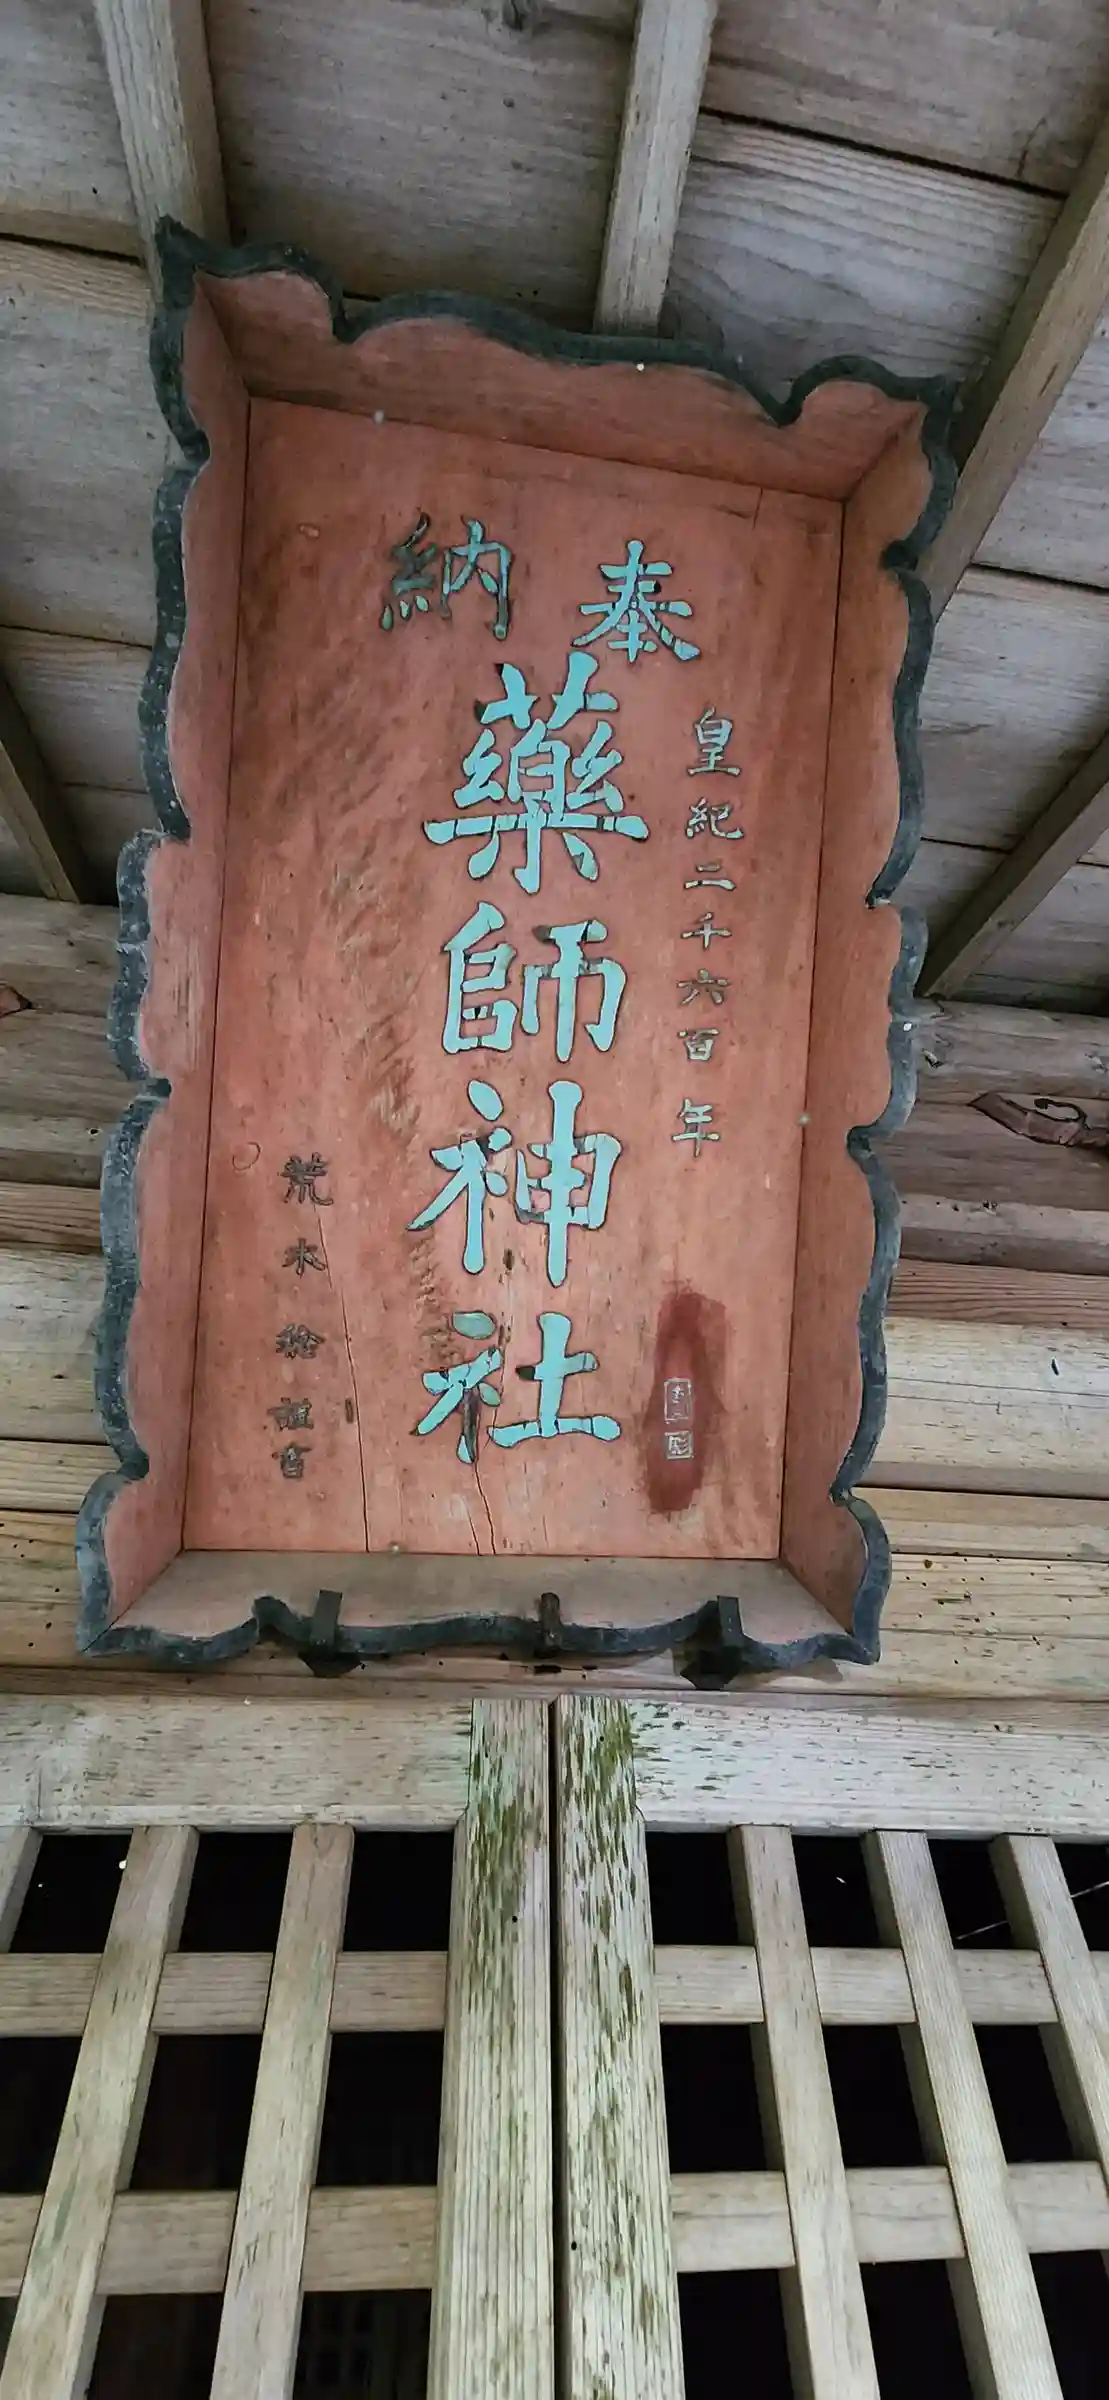 奉納
皇紀二千六百年
藥師神社
荒木